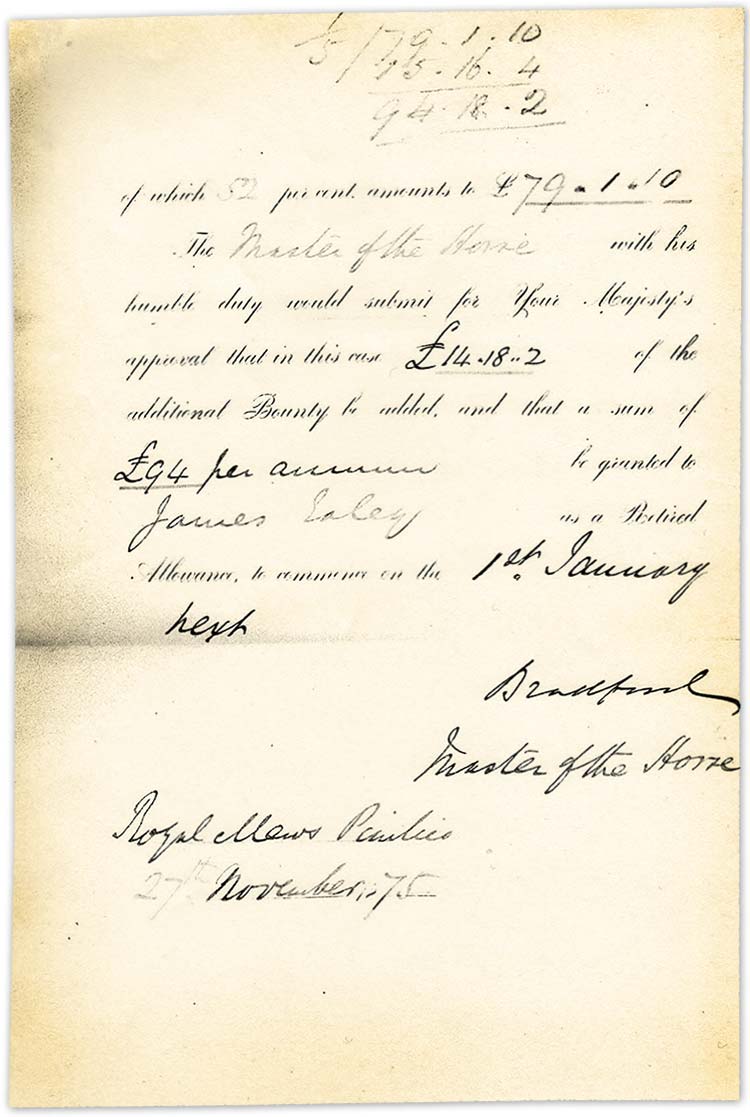 1/5 / 79 . 1 . 10
15 . 16 . 4
94 . 18 . 2
of which 52 per cent. amounts to £79 . 1 . 10
The Master of the Horse with his
humble duty would submit for Your Majesty's
approval that in this case £14.18..2 of the
additional Bounty be added, and that a sum of
£94 per annum be granted to
James as a Retired
Allowance, to commence on the 1st. January
next
Bradford
Master of the Horse
Royal Mews Pimlico
27th November, 75